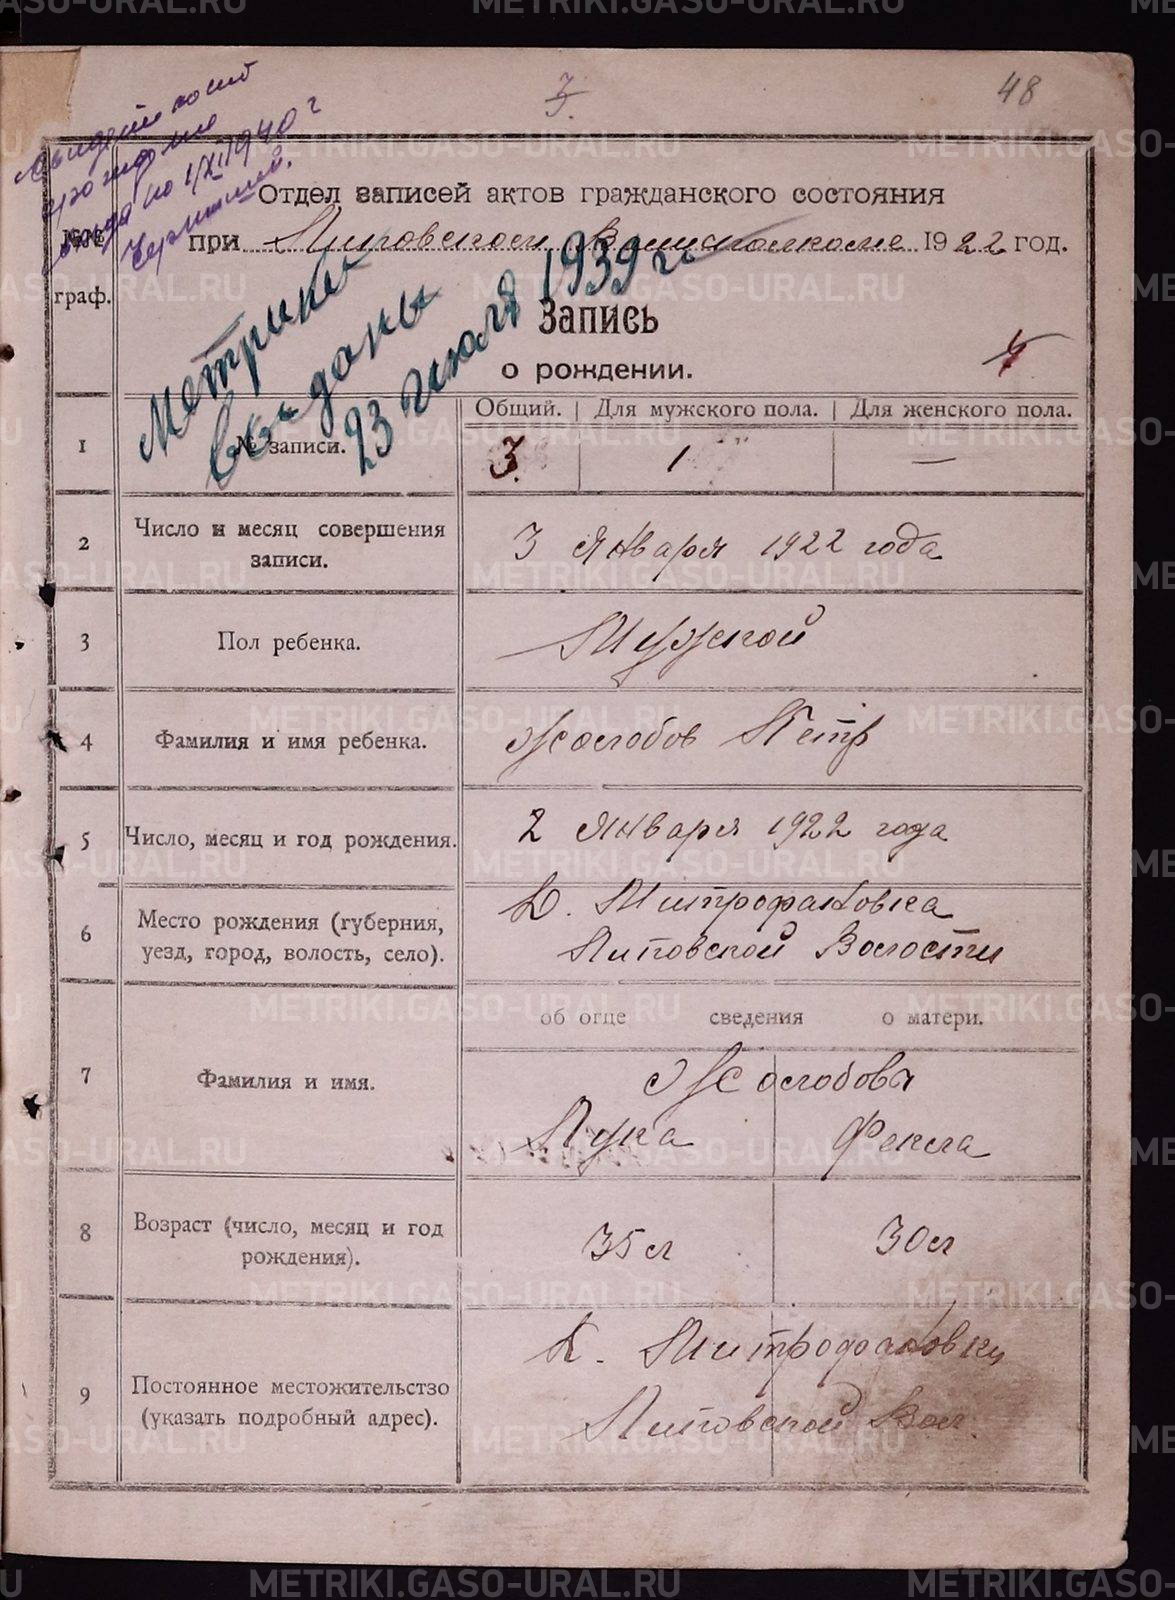 48
3.
Свидетельство
рождение
1/XI 1940 г
Отдел записей актов гражданского состояния
№№ граф.
при Липовском Волисполкоме 1922 год.
Метрики
выданы
23 июля 1939 г.
Запись
о рождении.
4
Общий. Для мужского пола. Для женского пола.
1 № записи. 3. 1 —
2 Число и месяц совершения записи. 3 Января 1922 года
3 Пол ребенка. Мужской
4 Фамилия и имя ребенка. Жолобов Петр
5 Число, месяц и год рождения. 2 Января 1922 года
6 Место рождения (губерния, уезд, город, волость, село).
Д. Митрофановка
Липовской Волости
об отце сведения о матери.
7 Фамилия и имя. Жолобовы
Лука Фекла
8 Возраст (число, месяц и год рождения). 35 л 30 л
9 Постоянное местожительство (указать подробный адрес).
Д. Митрофановки
Липовской Вол.
METRIKI.GASO-URAL.RU